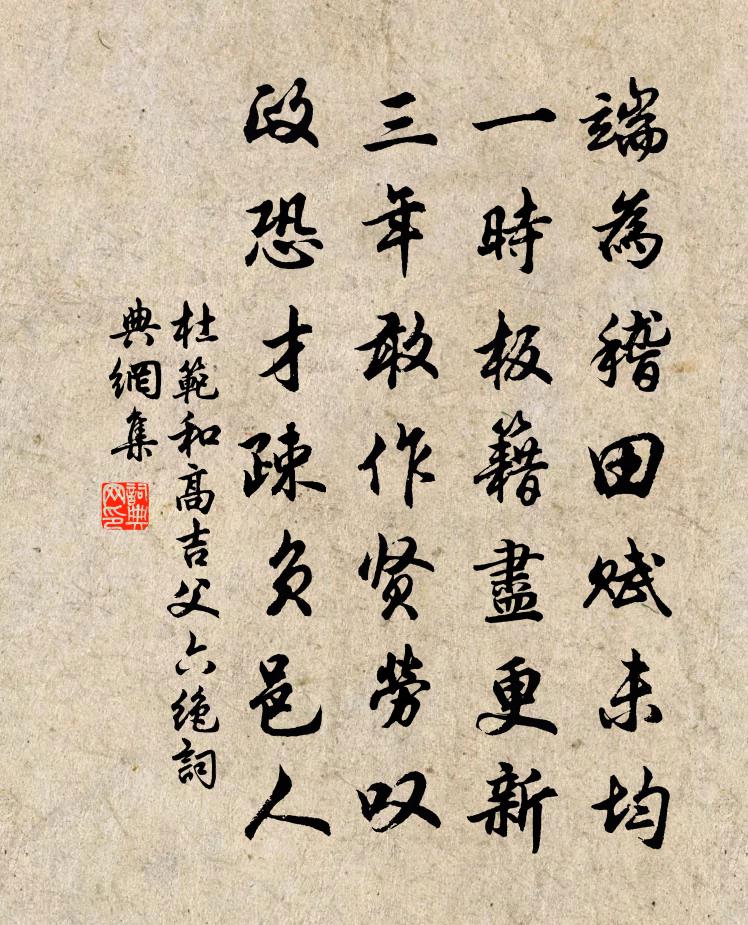 端為稽田赋未均
一時板籍盡更新
三年敢作贤勞叹
政恐才疎负邑人
杜範和高吉父六绝詞
典網集
詞典网印